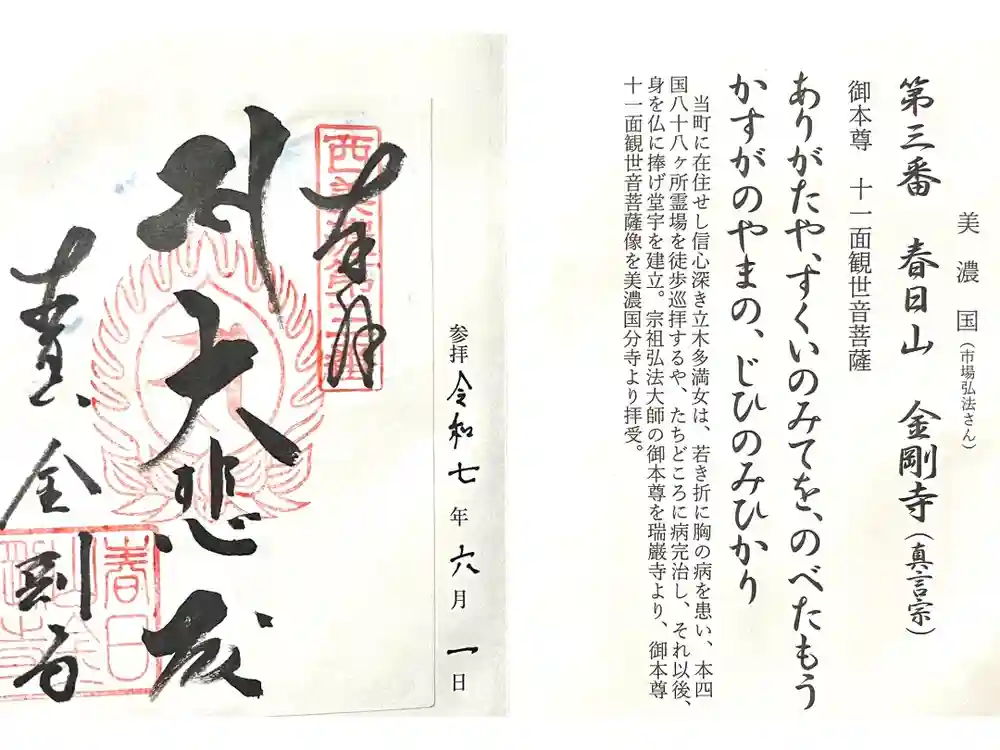 美濃国（市場弘法さん）
第三番 春日山 金剛寺（真言宗）
御本尊 十一面観世音菩薩
ありがたや、すくいのみてを、のべたもう
かすがのやまの、じひのみひかり
当町に在住せし信心深き立木多満女は、若き折に胸の病を患い、本四
国八十八ヶ所霊場を徒歩巡拝するや、たちどころに病完治し、それ以後、
身を仏に捧げ堂宇を建立。宗祖弘法大師の御本尊を瑞巌寺より、御本尊
十一面観世音菩薩像を美濃国分寺より拝受。
参拝 令和七年六月一日
奉拝
大悲殿
金剛寺
春日